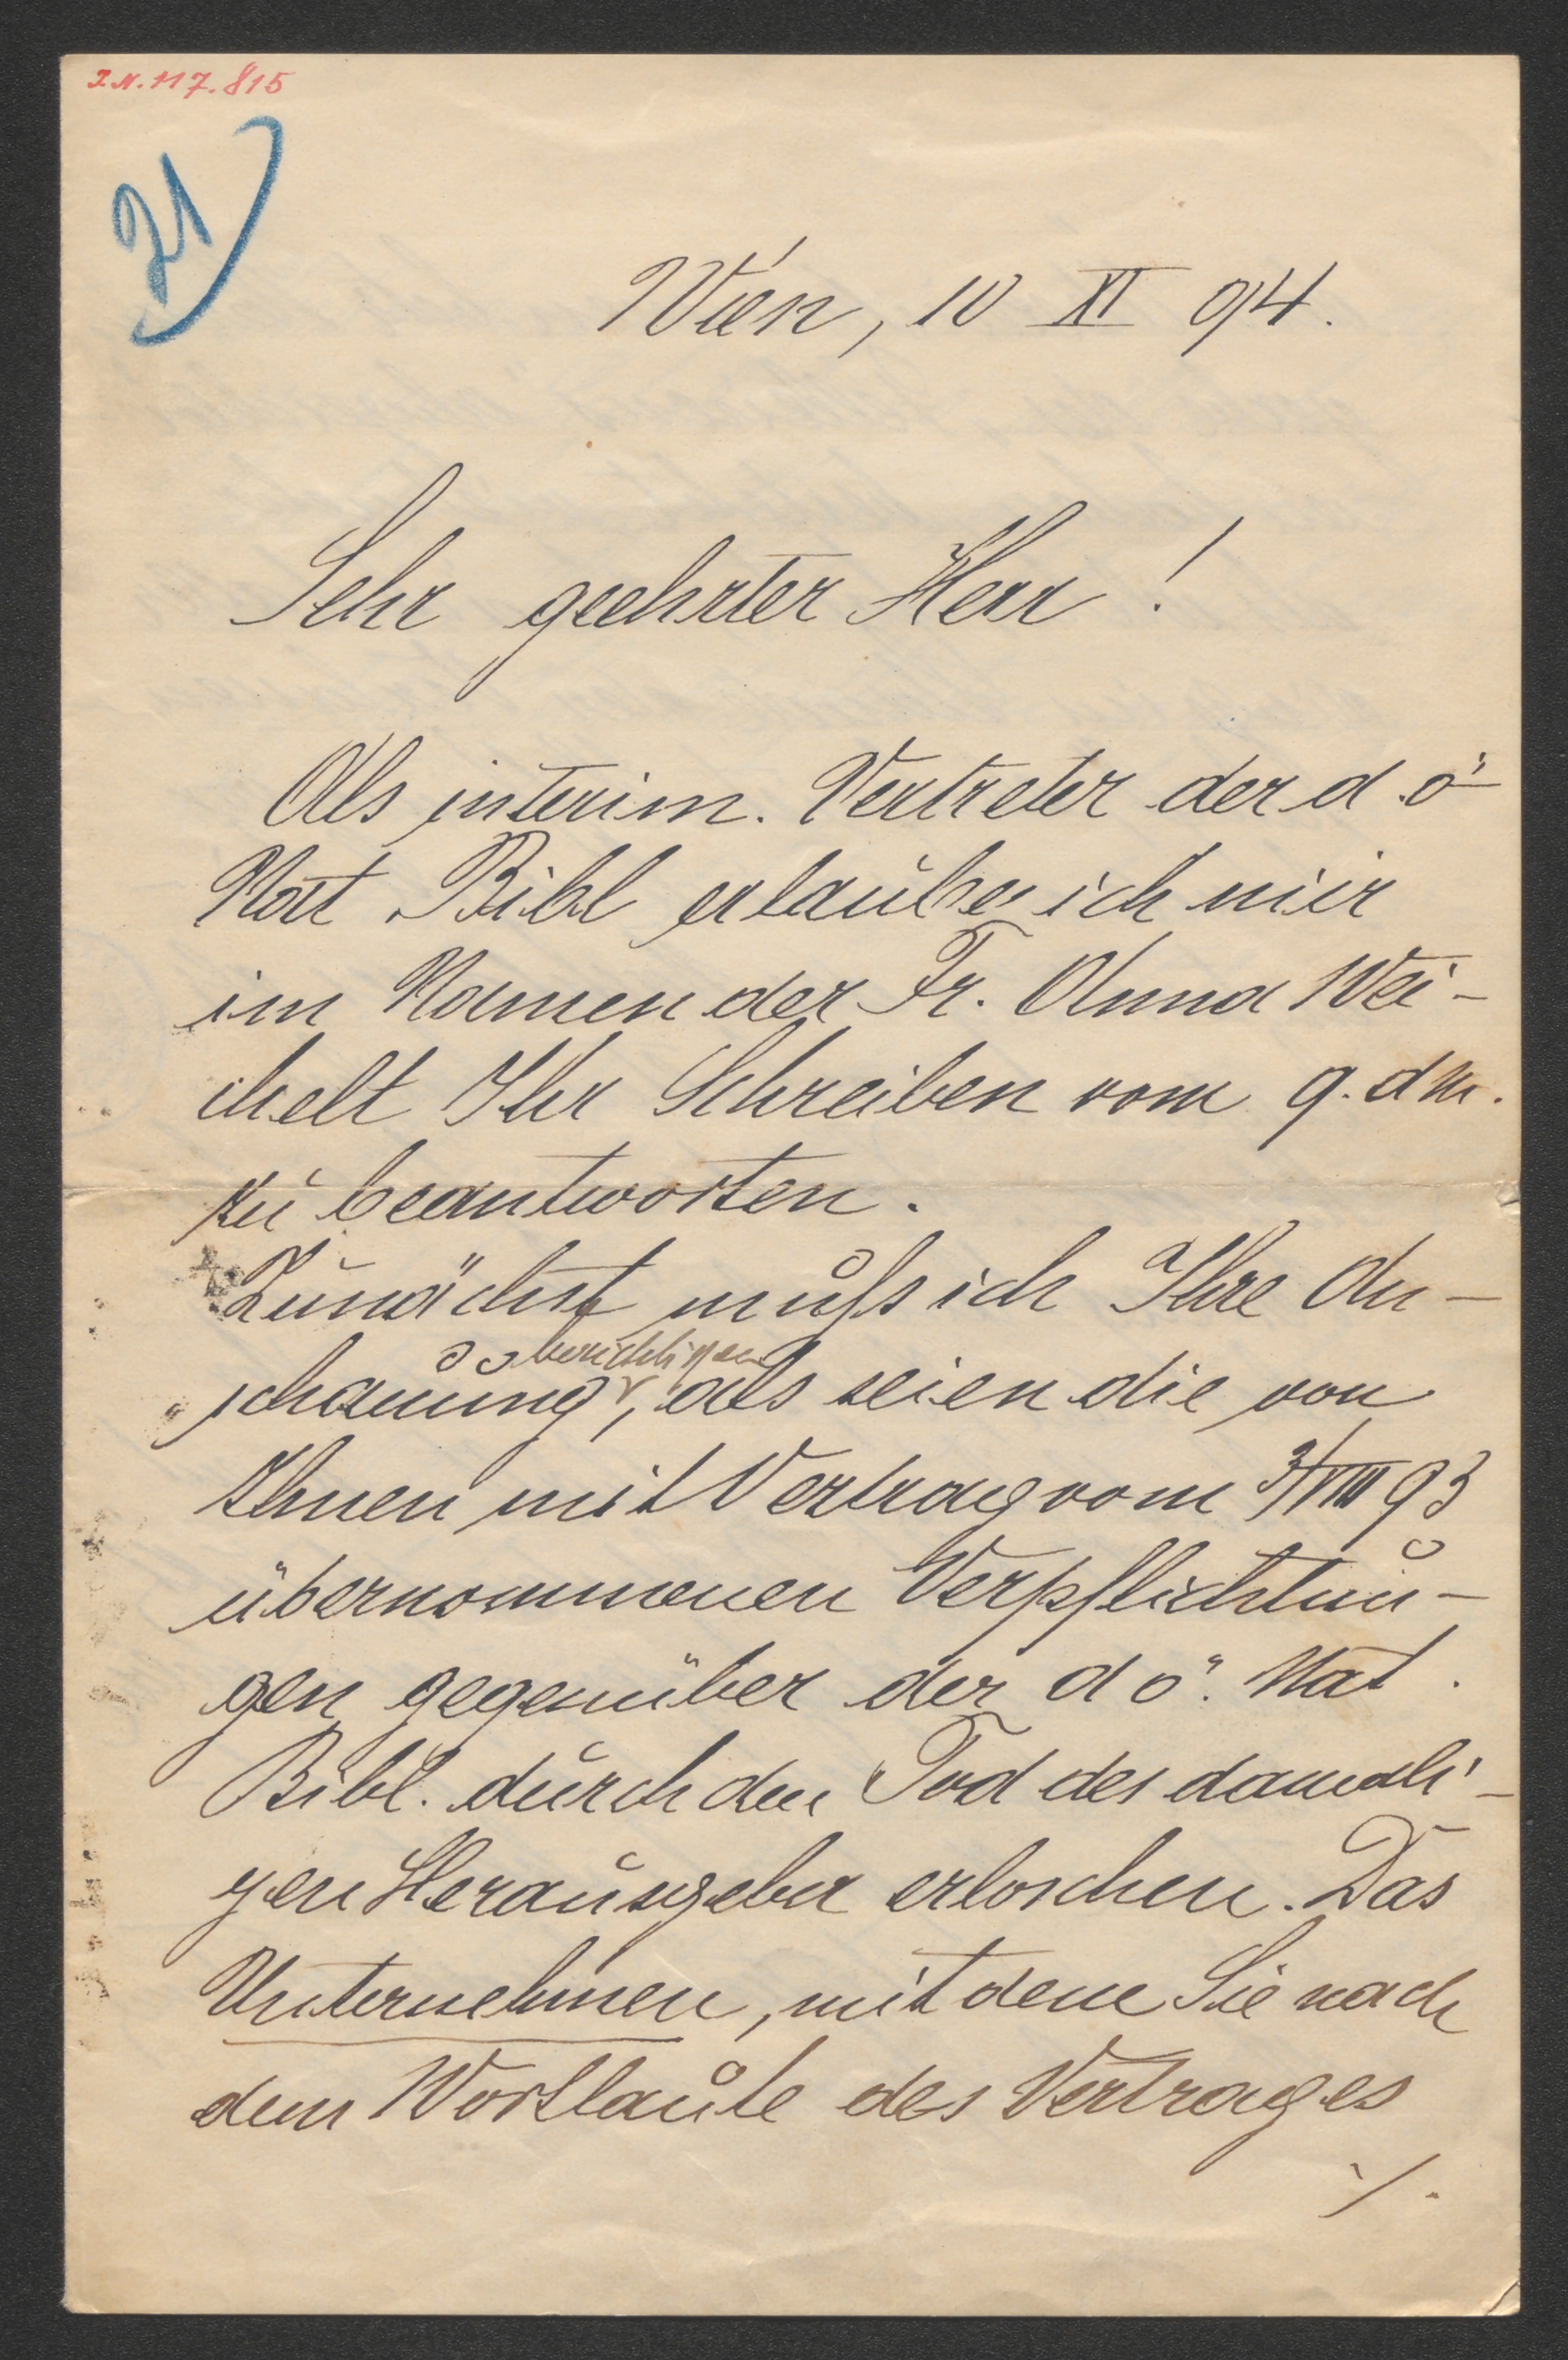 I.N. 117.815
21)
Wien, 10 XI 94.
Sehr geehrter Herr!
Als interim. Vertreter der d. ö
Nat. Bibl erlaube ich mir
im Namen der Fr. Anna Wei-
chelt Ihr Schreiben vom 9. d M.
zu beantworten.
Zunächst muß ich Ihre An-
berichtigen
schauung, als seien die von
Ihnen mit Vertrag vom 3/VIII 93
übernommenen Verpflichtun-
gen gegenüber der d ö. Nat.
Bibl. durch den Tod des damali-
gen Herausgeber erloschen. Das
Unternehmen, mit dem Sie nach
dem Wortlaute des Vertrages
./.